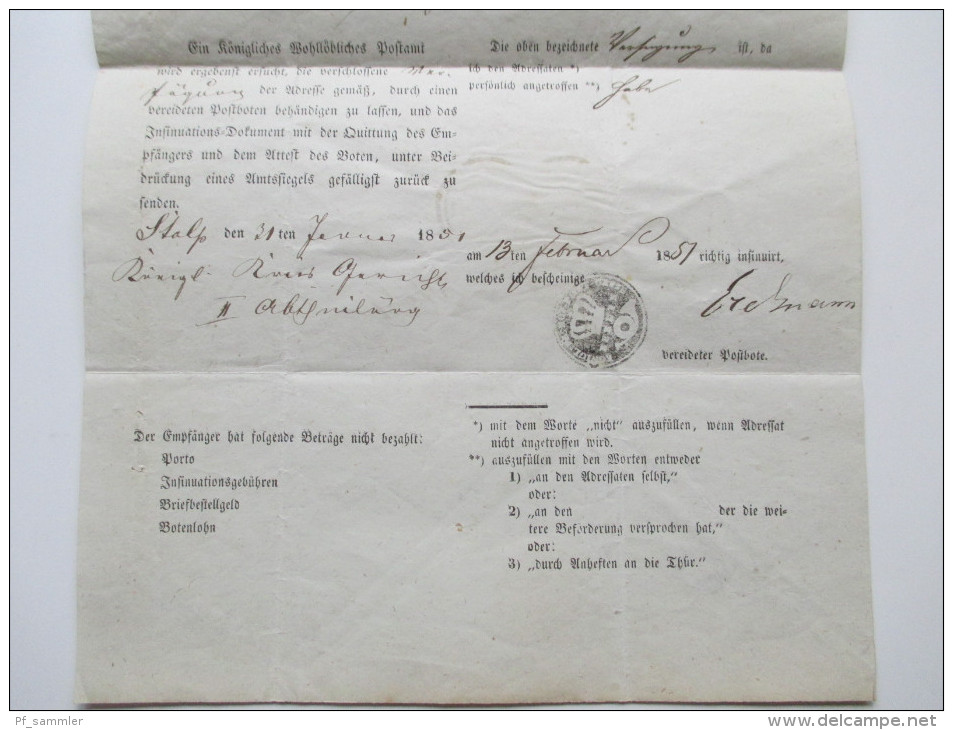 Ein Königliches Wohllöbliches Postamt
wird ergebenst ersucht, die verschlossene Ver-
fügung der Adresse gemäß, durch einen
vereideten Postboten behändigen zu lassen, und das
Insinuations-Dokument mit der Quittung des Em-
pfängers und dem Attest des Boten, unter Bei-
drückung eines Amtssiegels gefälligst zurück zu
senden.
Stolp den 31ten Januar 1851
Königl. Kreis Gericht
II Abtheilung
Die oben bezeichnete Verfügung ist, da
ich den Adressaten *)
persönlich angetroffen **) habe
am 13ten Februar 1851 richtig insinuirt,
welches ich bescheinige
Erdmann
vereideter Postbote.
Der Empfänger hat folgende Beträge nicht bezahlt:
Porto
Insinuationsgebühren
Briefbestellgeld
Botenlohn
*) mit dem Worte „nicht" auszufüllen, wenn Adressat
nicht angetroffen wird.
**) auszufüllen mit den Worten entweder
1) „an den Adressaten selbst,"
oder:
2) „an den der die wei-
tere Beförderung versprochen hat,"
oder:
3) „durch Anheften an die Thür."
Pf_sammler
delcampe.net